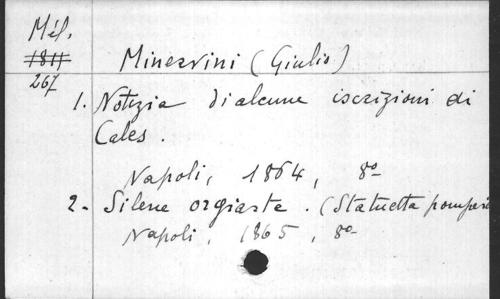 Mél.
1811
267
Minervini (Giulio)
1. Notizia di alcune iscrizioni di
Cales.
Napoli, 1864, 8º
2. Silene orgiaste. (Statuetta pompei
Napoli, 1865, 8º